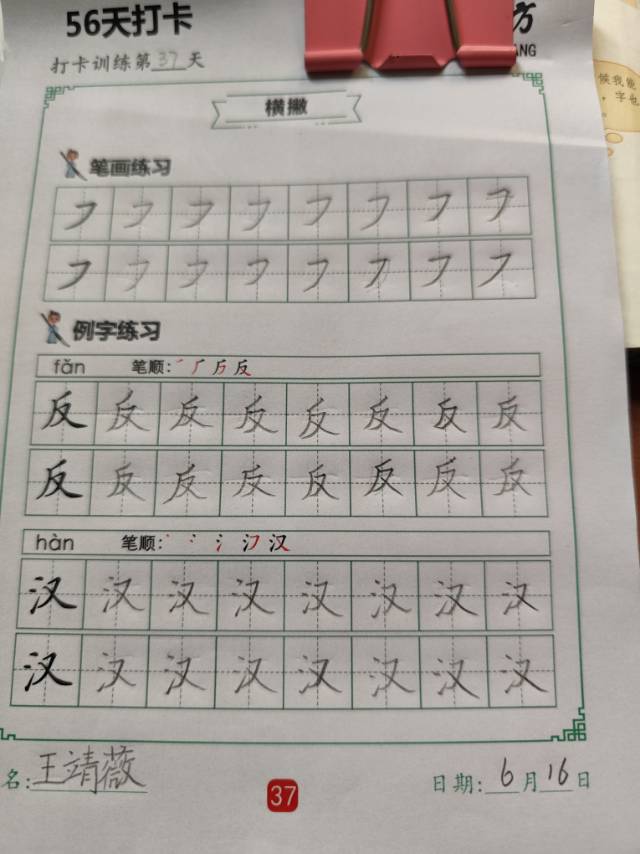 56天打卡
方
打卡训练第37天
ANG
候我能
，字也
横撇
笔画练习
例字练习
fǎn 笔顺：
反 反 反 反 反 反 反 反
反 反 反 反 反 反 反 反
hàn 笔顺：
汉 汉 汉 汉 汉 汉 汉 汉
汉 汉 汉 汉 汉 汉 汉 汉
名：王靖薇
37
日期：6月16日